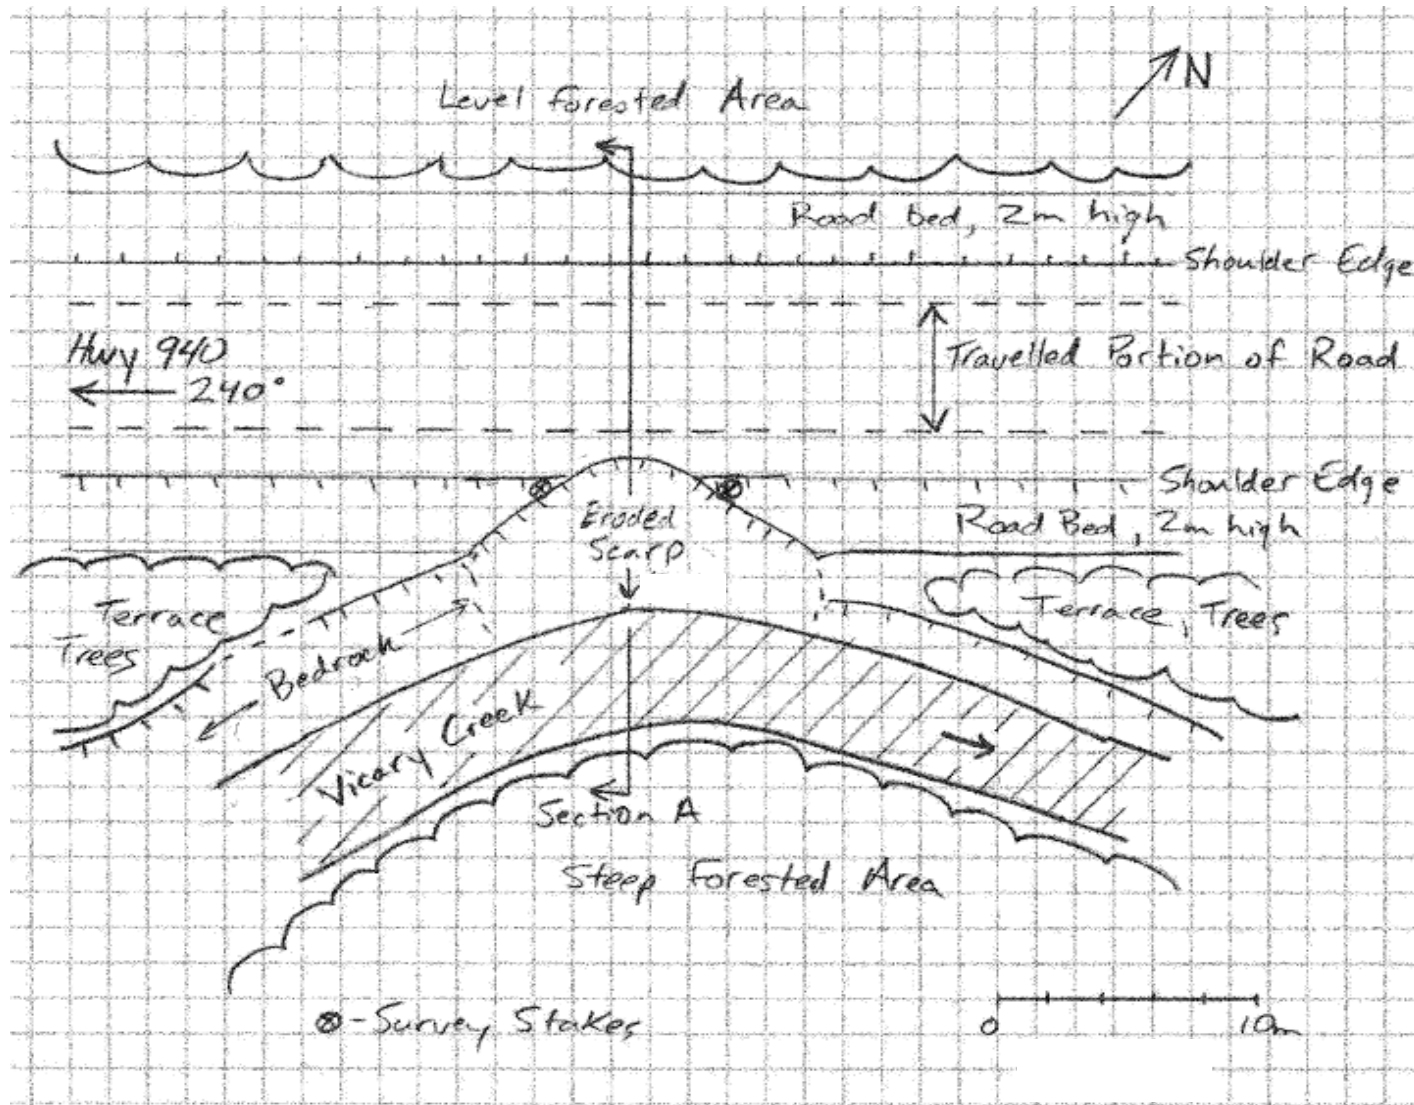 N
Level Forested Area
Road bed, 2m high
Shoulder Edge
Hwy 940
240°
Travelled Portion of Road
Shoulder Edge
Eroded
Scarp
Road Bed, 2m high
Terrace
Trees
Bedrock
Terrace, Trees
Vicary Creek
Section A
Steep Forested Area
⊗-Survey Stakes
0 10m